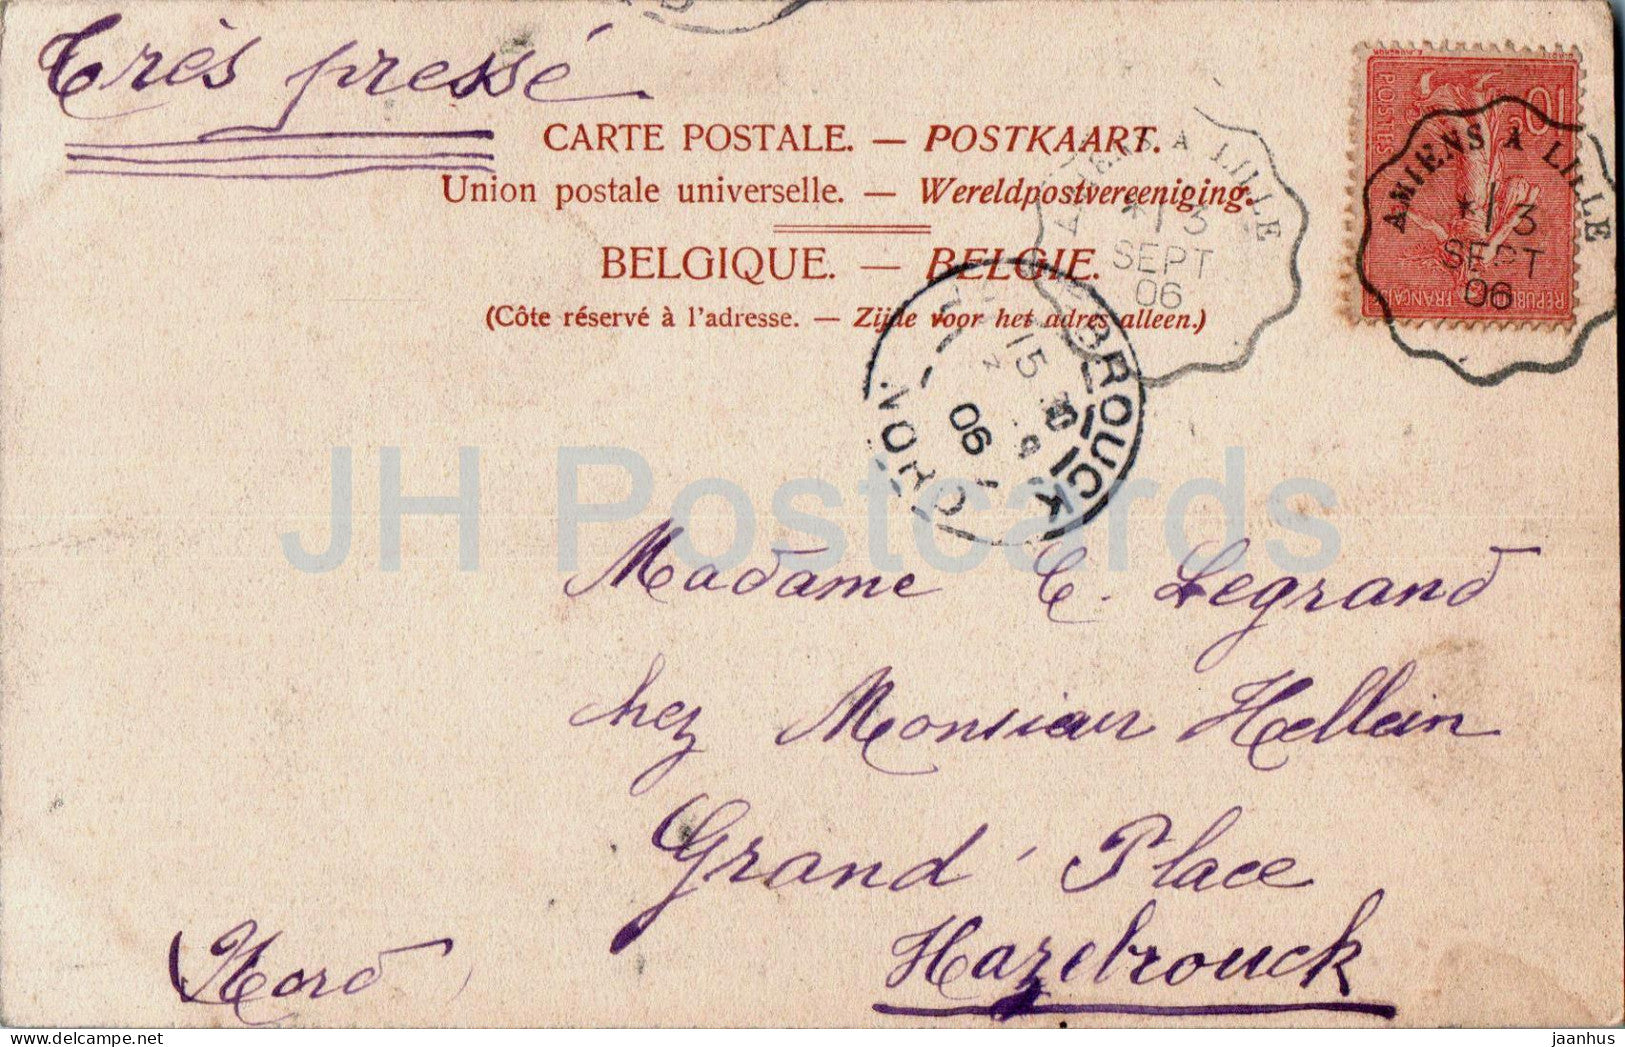 Très pressé
CARTE POSTALE. — POSTKAART.
Union postale universelle. — Wereldpostvereeniging.
BELGIQUE. — BELGIE.
(Côte réservé à l'adresse. — Zijde voor het adres alleen.)
AMIENS A LILLE
*13
SEPT
06
POSTES
10
REPUB FRANÇAI
AMIENS A LILLE
*13
SEPT
06
BROUCK
NORD
15
06
JH Postcards
Madame C. Legrand
chez Monsieur Hellein
Grand' Place
Hazebrouck
(Nord)
www.delcampe.net
jaanhus